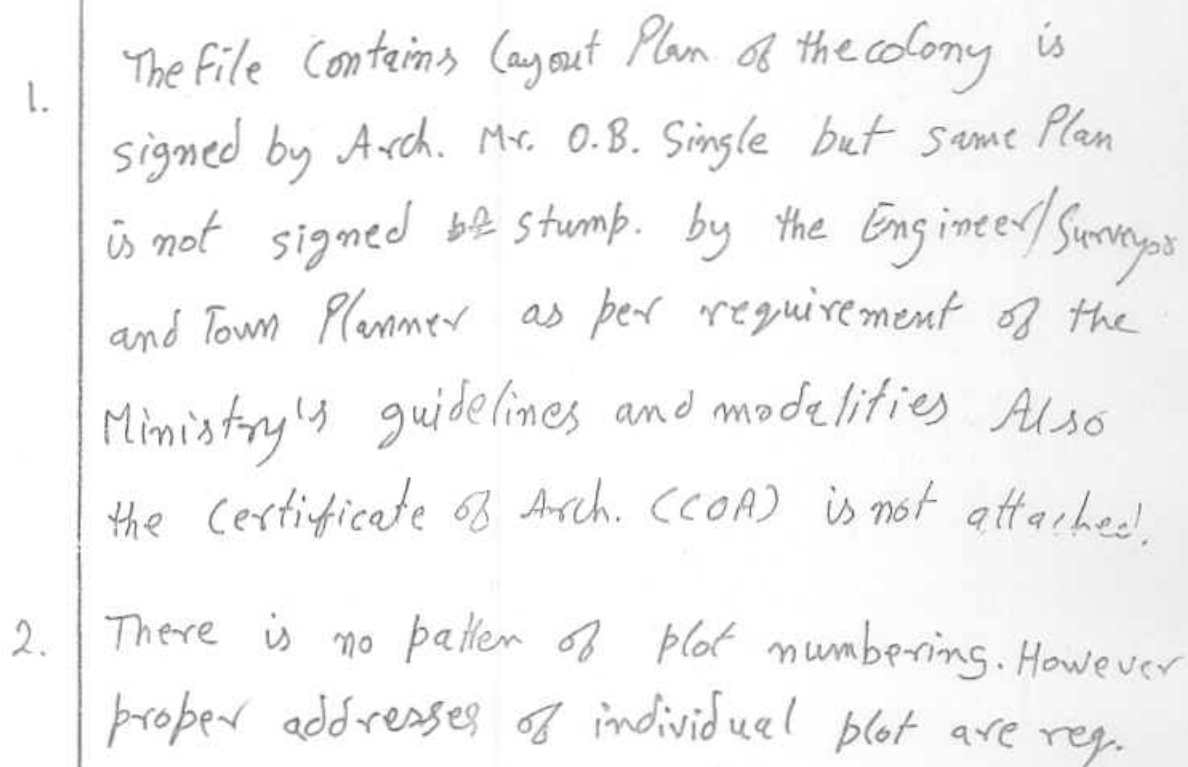 The File Contains Layout Plan of the colony is
1.
signed by Arch. Mr. O.B. Single but same Plan
is not signed stump. by the Engineer/Surveyor
and Town Planner as per requirement of the
Ministry's guidelines and modalities Also
the Certificate of Arch. (COA) is not attached.
2. There is no patten of plot numbering. However
proper addresses of individual plot are req.